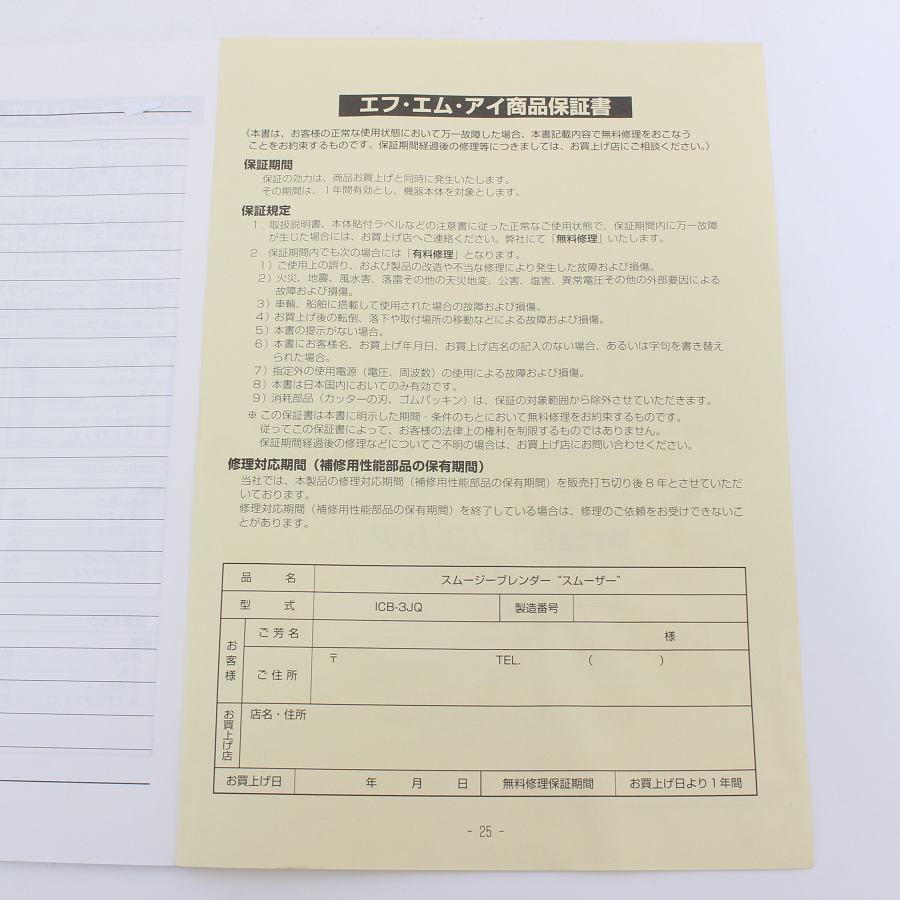 エフ・エム・アイ商品保証書
《本書は、お客様の正常な使用状態において万一故障した場合、本書記載内容で無料修理をおこなう
ことをお約束するものです。保証期間経過後の修理等につきましては、お買上げ店にご相談ください。》
保証期間
保証の効力は、商品お買上げと同時に発生いたします。
その期間は、1年間有効とし、機器本体を対象とします。
保証規定
1. 取扱説明書、本体貼付ラベルなどの注意書に従った正常なご使用状態で、保証期間内に万一故障
が生じた場合には、お買上げ店へご連絡ください。弊社にて「無料修理」いたします。
2. 保証期間内でも次の場合には「有料修理」となります。
1）ご使用上の誤り、および製品の改造や不当な修理により発生した故障および損傷。
2）火災、地震、風水害、落雷その他の天災地変、公害、塩害、異常電圧その他の外部要因による
故障および損傷。
3）車輌、船舶に搭載して使用された場合の故障および損傷。
4）お買上げ後の転倒、落下や取付場所の移動などによる故障および損傷。
5）本書の提示がない場合。
6）本書にお客様名、お買上げ年月日、お買上げ店名の記入のない場合、あるいは字句を書き替え
られた場合。
7）指定外の使用電源（電圧、周波数）の使用による故障および損傷。
8）本書は日本国内においてのみ有効です。
9）消耗部品（カッターの刃、ゴムパッキン）は、保証の対象範囲から除外させていただきます。
※ この保証書は本書に明示した期間・条件のもとにおいて無料修理をお約束するものです。
従ってこの保証書によって、お客様の法律上の権利を制限するものではありません。
保証期間経過後の修理などについてご不明の場合は、お買上げ店にお問い合わせください。
修理対応期間（補修用性能部品の保有期間）
当社では、本製品の修理対応期間（補修用性能部品の保有期間）を販売打ち切り後8年とさせていただ
いております。
修理対応期間（補修用性能部品の保有期間）を終了している場合は、修理のご依頼をお受けできないこ
とがあります。
品 名 スムージーブレンダー “スムーザー”
型 式 ICB-3JQ 製造番号
お客様 ご芳名 様
ご住所 〒 TEL. （ ）
お買上げ店 店名・住所
お買上げ日 年 月 日 無料修理保証期間 お買上げ日より1年間
- 25 -